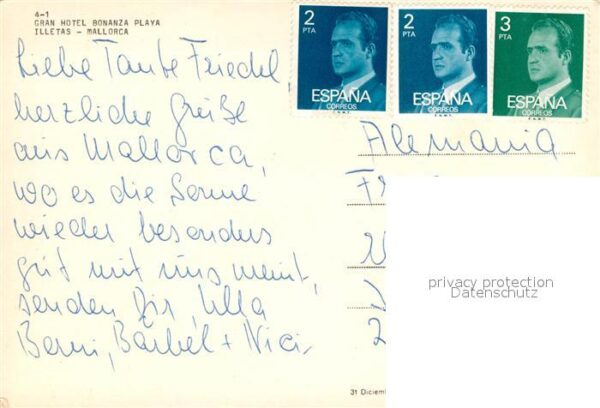 4-1
GRAN HOTEL BONANZA PLAYA
ILLETAS - MALLORCA
Liebe Tante Friedel,
herzliche Grüße
aus Mallorca,
wo es die Sonne
wieder besonders
gut mit uns meint,
senden Dir, Ulla
Berni, Bärbel + Nici.
2
PTA
ESPAÑA
CORREOS
2
PTA
ESPAÑA
CORREOS
3
PTA
ESPAÑA
CORREOS
Alemania
privacy protection
Datenschutz
31 Diciem